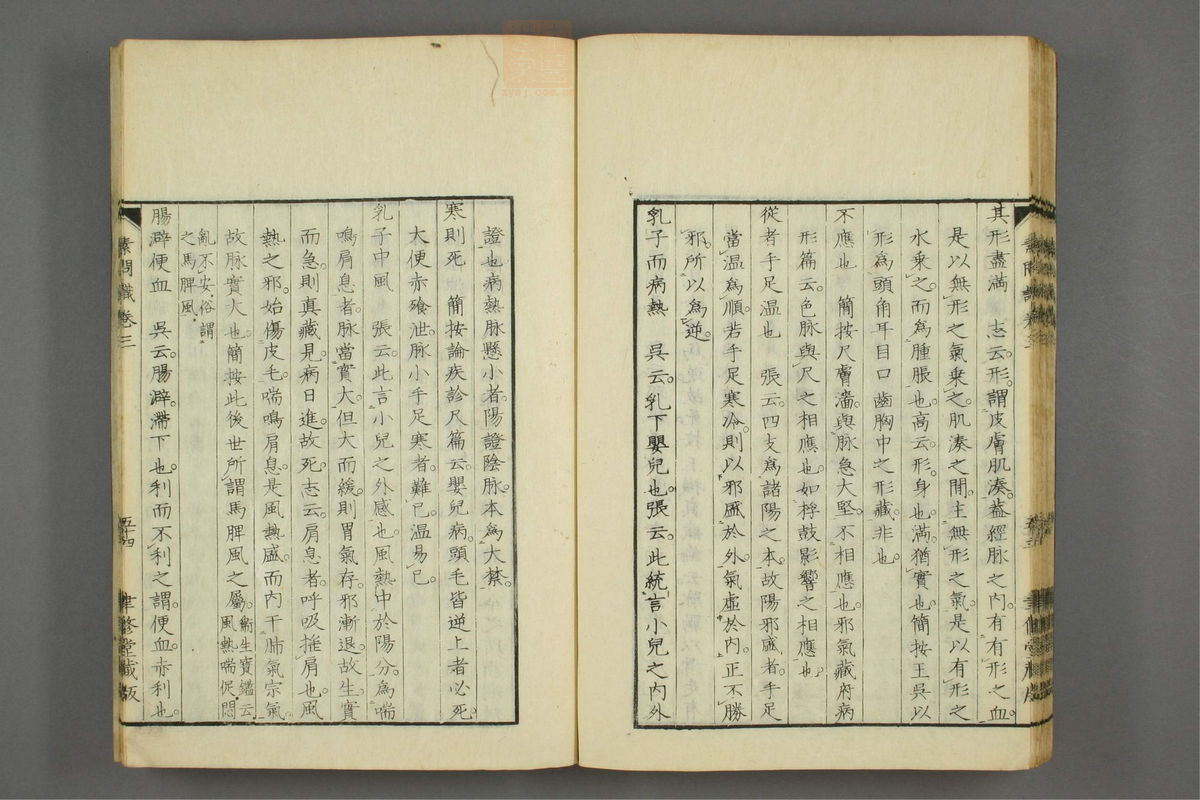 其形盡滿　志云形謂皮膚肌湊蓋經脉之內有有形之血
是以無形之氣乗之肌湊之間主無形之氣是以有形之
水乗之而為腫脹也高云形身也滿猶實也簡按王吳以
形為頭角耳目口齒胸中之形藏非也
不應也　簡按尺膚濇與脉急大堅不相應也邪氣藏府病
形篇云色脉與尺之相應也如桴鼓影響之相應也
從者手足溫也　張云四支為諸陽之本故陽邪盛者手足
當溫為順若手足寒冷則以邪盛於外氣虛於內正不勝
邪所以為逆
乳子而病熱　吳云乳下嬰兒也張云此統言小兒之內外
證也病熱脉懸小者陽證陰脉本為大禁
寒則死　簡按論疾診尺篇云嬰兒病頭毛皆逆上者必死
大便赤飧泄脉小手足寒者難已溫易已
乳子中風　張云此言小兒之外感也風熱中於陽分為喘
鳴肩息者脉當實大但大而緩則胃氣存邪漸退故生實
而急則真藏見病日進故死志云肩息者呼吸搖肩也風
熱之邪始傷皮毛喘鳴肩息是風熱盛而內干肺氣宗氣
故脉實大也簡按此後世所謂馬脾風之屬衛生寶鑑云風熱喘促悶
亂不安俗謂之馬脾風
腸澼便血　吳云腸澼滯下也利而不利之謂便血赤利也
素問識卷三
五十四
聿修堂藏版